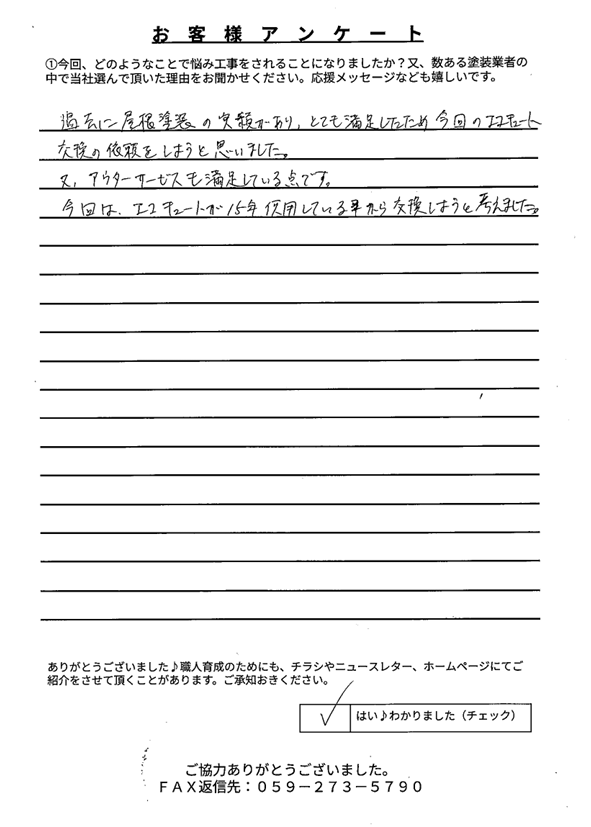 お客様アンケート
①今回、どのようなことで悩み工事をされることになりましたか？又、数ある塗装業者の
中で当社選んで頂いた理由をお聞かせください。応援メッセージなども嬉しいです。
過去に屋根塗装の実績があり、とても満足したため今回のエコキュート
交換の依頼をしようと思いました。
又、アウターサービスも満足している点です。
今回は、エコキュートが15年使用している事から交換しようと考えました。
ありがとうございました♪職人育成のためにも、チラシやニュースレター、ホームページにてご
紹介をさせて頂くことがあります。ご承知おきください。
✓ はい♪わかりました（チェック）
ご協力ありがとうございました。
ＦＡＸ返信先：０５９－２７３－５７９０